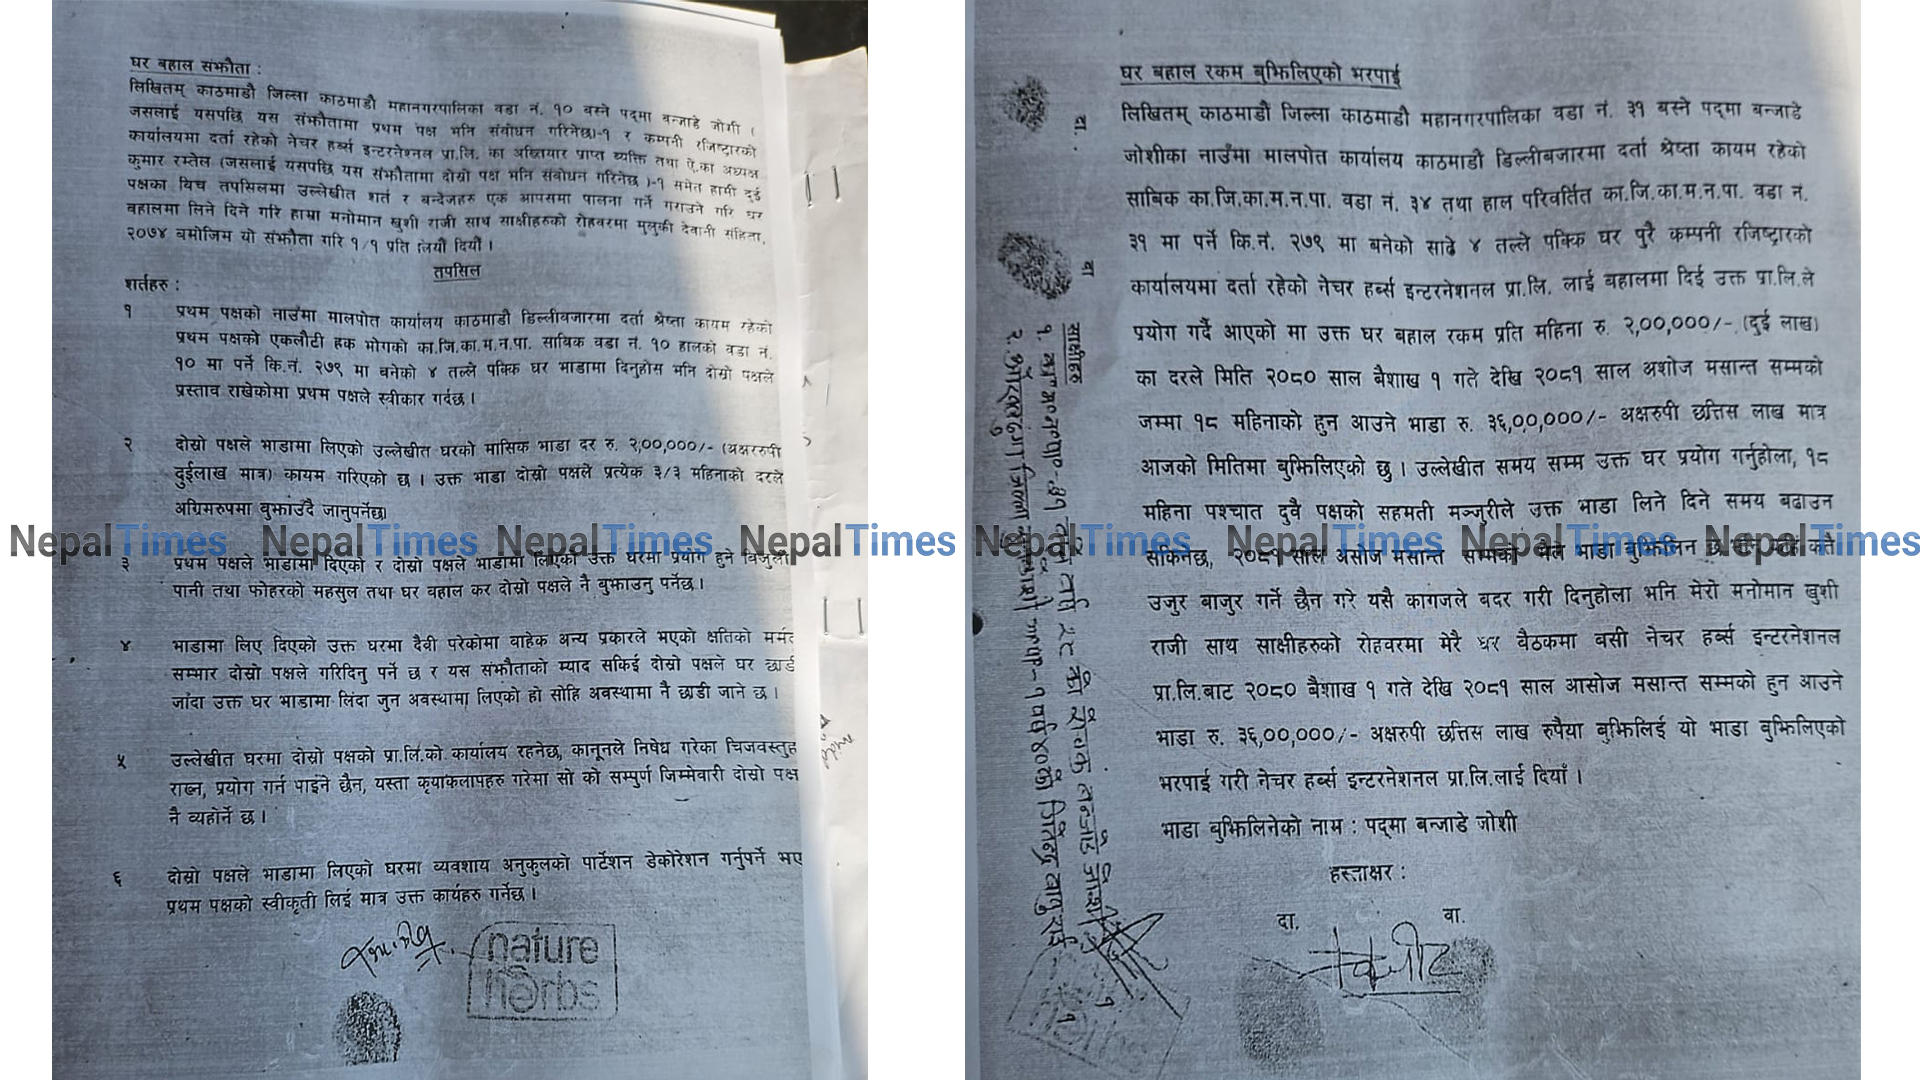 घर बहाल संझौता :
लिखितम् काठमाडौ जिल्ला काठमाडौ महानगरपालिका वडा नं. १० बस्ने पद्मा बन्जाडे जोशी (
जसलाई यसपछि यस संझौतामा प्रथम पक्ष भनि संबोधन गरिनेछ)-१ र कम्पनी रजिष्ट्रारको
कार्यालयमा दर्ता रहेको नेचर हर्ब्स इन्टरनेश्नल प्रा.लि. का अख्तियार प्राप्त व्यक्ति तथा ऐ.का अध्यक्ष
कुमार रम्तेल (जसलाई यसपछि यस संझौतामा दोस्रो पक्ष भनि संबोधन गरिनेछ )-१ समेत हामी दुई
पक्षका विच तपसिलमा उल्लेखीत शर्त र बन्देजहरु एक आपसमा पालना गर्ने गराउने गरि घर
बहालमा लिने दिने गरि हाम्रा मनोमान खुशी राजी साथ साक्षीहरुको रोहवरमा मुलुकी देवानी संहिता,
२०७४ बमोजिम यो संझौता गरि १/१ प्रति लियौं दियौं ।
तपसिल
शर्तहरु :
१ प्रथम पक्षको नाउँमा मालपोत कार्यालय काठमाडौ डिल्लीवजारमा दर्ता श्रेष्ता कायम रहेको
प्रथम पक्षको एकलौटी हक भोगको का.जि.का.म.न.पा. साविक वडा नं. १० हालको वडा नं.
१० मा पर्ने कि.नं. २७९ मा बनेको ४ तल्ले पक्कि घर भाडामा दिनुहोस भनि दोस्रो पक्षले
प्रस्ताव राखेकोमा प्रथम पक्षले स्वीकार गर्दछ ।
२ दोस्रो पक्षले भाडामा लिएको उल्लेखीत घरको मासिक भाडा दर रु. २,००,०००/- (अक्षररुपी
दुईलाख मात्र) कायम गरिएको छ । उक्त भाडा दोस्रो पक्षले प्रत्येक ३/३ महिनाको दरले
अग्रिमरुपमा बुझाउँदै जानुपर्नेछ।
३ प्रथम पक्षले भाडामा दिएको र दोस्रो पक्षले भाडामा लिएको उक्त घरमा प्रयोग हुने बिजुली
पानी तथा फोहरको महसुल तथा घर वहाल कर दोस्रो पक्षले नै बुझाउनु पर्नेछ ।
४ भाडामा लिए दिएको उक्त घरमा दैवी परेकोमा वाहेक अन्य प्रकारले भएको क्षतिको मर्मत
सम्भार दोस्रो पक्षले गरिदिनु पर्ने छ र यस संझौताको म्याद सकिई दोस्रो पक्षले घर छाडी
जांदा उक्त घर भाडामा लिंदा जुन अवस्थामा लिएको हो सोहि अवस्थामा नै छाडी जाने छ ।
५ उल्लेखीत घरमा दोस्रो पक्षको प्रा.लि.को कार्यालय रहनेछ, कानूनले निषेध गरेका चिजवस्तुह
राख्न, प्रयोग गर्न पाईने छैन, यस्ता कृयाकलापहरु गरेमा सो को सम्पुर्ण जिम्मेवारी दोस्रो पक्ष
नै व्यहोर्ने छ ।
६ दोस्रो पक्षले भाडामा लिएको घरमा व्यवशाय अनुकुलको पार्टेशन डेकोरेशन गर्नुपर्ने भए
प्रथम पक्षको स्वीकृती लिई मात्र उक्त कार्यहरु गर्नेछ ।
nature
herbs
घर बहाल रकम बुझिलिएको भरपाई
लिखितम् काठमाडौ जिल्ला काठमाडौ महानगरपालिका वडा नं. ३१ बस्ने पद्मा बन्जाडे
जोशीका नाउँमा मालपोत कार्यालय काठमाडौ डिल्लीबजारमा दर्ता श्रेष्ता कायम रहेको
साबिक का.जि.का.म.न.पा. वडा नं. ३४ तथा हाल परिवर्तित का.जि.का.म.न.पा. वडा नं.
३१ मा पर्ने कि.नं. २७९ मा बनेको साढे ४ तल्ले पक्कि घर पुरै कम्पनी रजिष्ट्रारको
कार्यालयमा दर्ता रहेको नेचर हर्ब्स इन्टरनेशनल प्रा.लि. लाई बहालमा दिई उक्त प्रा.लि.ले
प्रयोग गर्दै आएको मा उक्त घर बहाल रकम प्रति महिना रु. २,००,०००/- (दुई लाख)
का दरले मिति २०८० साल बैशाख १ गते देखि २०८१ साल अशोज मसान्त सम्मको
जम्मा १८ महिनाको हुन आउने भाडा रु. ३६,००,०००/- अक्षरुपी छत्तिस लाख मात्र
आजको मितिमा बुझिलिएको छु । उल्लेखीत समय सम्म उक्त घर प्रयोग गर्नुहोला, १८
महिना पश्चात दुवै पक्षको सहमती मञ्जुरीले उक्त भाडा लिने दिने समय बढाउन
सकिनेछ, २०८१ साल असोज मसान्त सम्मको मैले भाडा
उजुर बाजुर गर्ने छैन गरे यसै कागजले बदर गरी दिनुहोला भनि मेरो मनोमान खुशी
राजी साथ साक्षीहरुको रोहवरमा मेरै घर बैठकमा बसी नेचर हर्ब्स इन्टरनेशनल
प्रा.लि.बाट २०८० बैशाख १ गते देखि २०८१ साल आसोज मसान्त सम्मको हुन आउने
भाडा रु. ३६,००,०००/- अक्षरुपी छत्तिस लाख रुपैया बुझिलिई यो भाडा बुझिलिएको
भरपाई गरी नेचर हर्ब्स इन्टरनेशनल प्रा.लि.लाई दियाँ ।
भाडा बुझिलिनेको नाम : पद्मा बन्जाडे जोशी
हस्ताक्षर :
दा. वा.
साक्षीहरु
NepalTimes NepalTimes NepalTimes NepalTimes NepalTimes NepalTimes NepalTimes NepalTimes